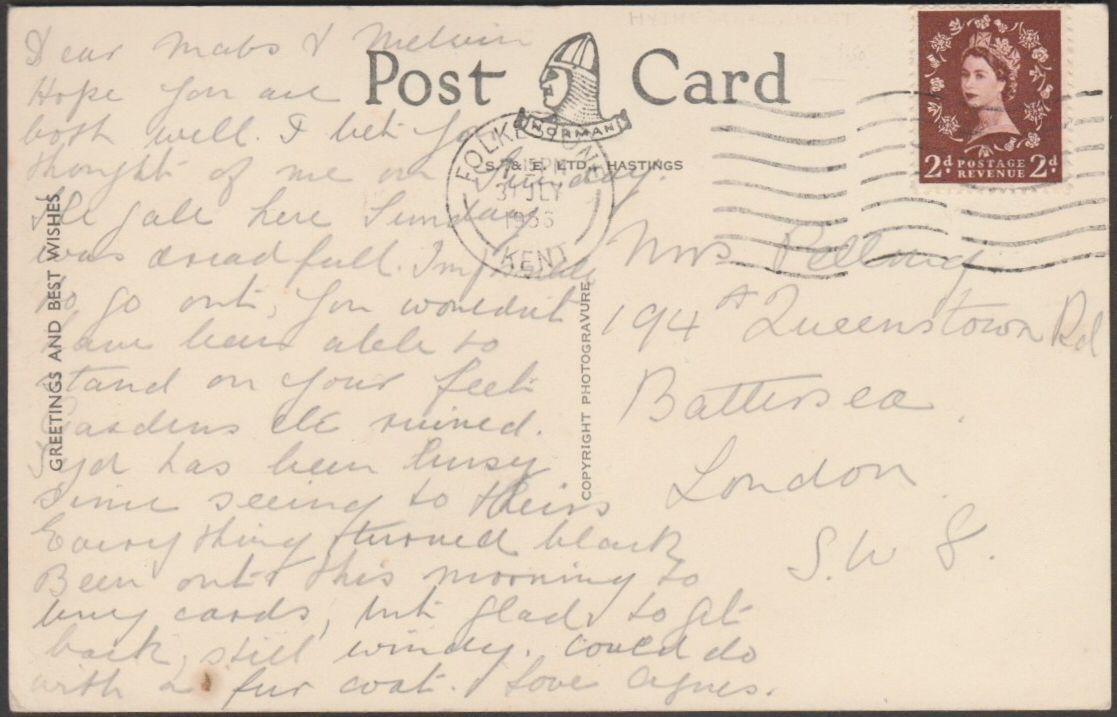 Dear Mabs & Melvin
Hope you are
both well. I bet you
thought of me on Sunday.
The gale here Sunday
was dreadfull. Impossible
to go out, you wouldn't
have been able to
stand on your feet
Gardens etc ruined.
Syd has been busy
since seeing to theirs
Everything turned black
Been out this morning to
buy cards, but glad to get
back, still windy. Could do
with a fur coat. Love Agnes.
GREETINGS AND BEST WISHES
Post Card
NORMAN
S. & E. LTD., HASTINGS
FOLKESTONE
15 PM
31 JLY
KENT
COPYRIGHT PHOTOGRAVURE
2d POSTAGE REVENUE 2d
Mrs
194A Queenstown Rd
Battersea.
London.
S.W 8.